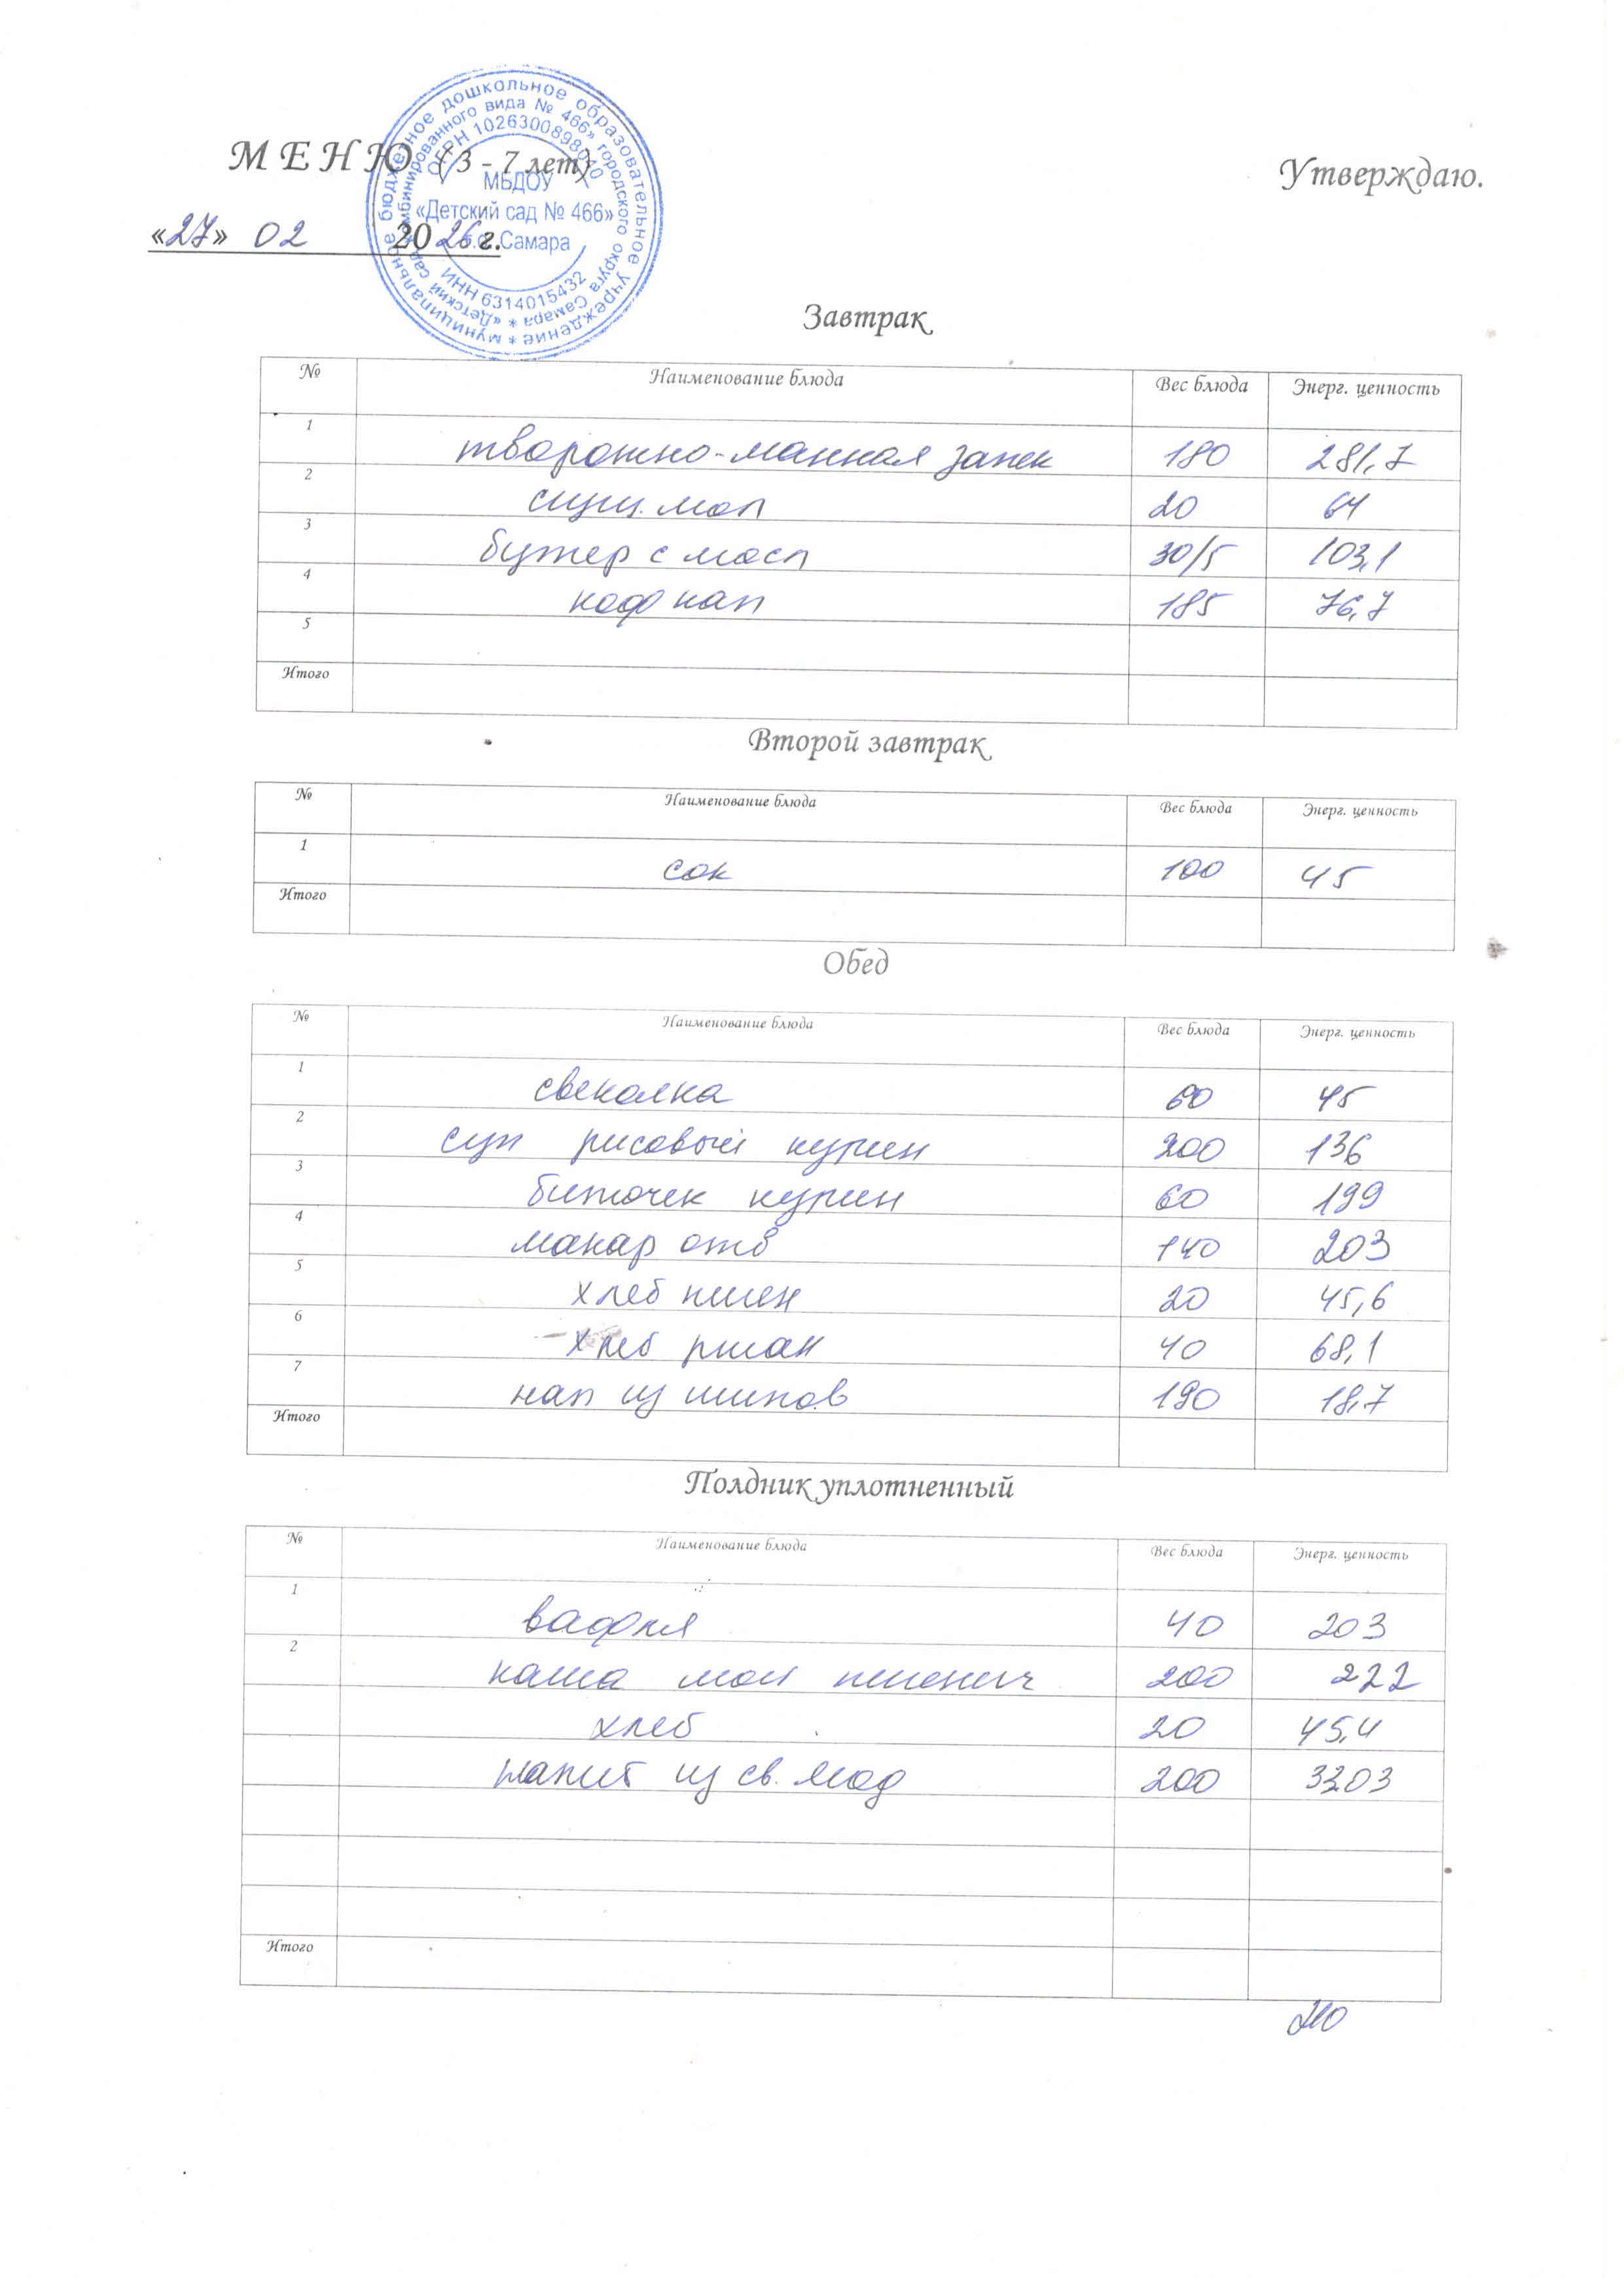 муниципальное бюджетное дошкольное образовательное учреждение *
«Детский сад комбинированного вида № 466» городского округа Самара *
ОГРН
МБДОУ
«Детский сад № 466»
г.о. Самара
ИНН 6314015432
М Е Н Ю (3 - 7 лет)
Утверждаю.
«27» 02 2026 г.
Завтрак
№ Наименование блюда Вес блюда Энерг. ценность
1 творожно-манная запек 180 281,7
2 сгущ. мол 20 64
3 бутер с масл 30/5 103,1
4 коф нап 185 76,7
5
Итого
Второй завтрак
№ Наименование блюда Вес блюда Энерг. ценность
1 сок 100 45
Итого
Обед
№ Наименование блюда Вес блюда Энерг. ценность
1 свеколка 60 45
2 суп рисовый курин 200 136
3 биточек курин 60 199
4 макар отв 140 203
5 хлеб пшен 20 45,6
6 хлеб ржан 40 68,1
7 нап из шипов 190 18,7
Итого
Полдник уплотненный
№ Наименование блюда Вес блюда Энерг. ценность
1 вафля 40 203
2 каша мол пшенич 200 222
хлеб 20 45,4
из св. 200
Итого